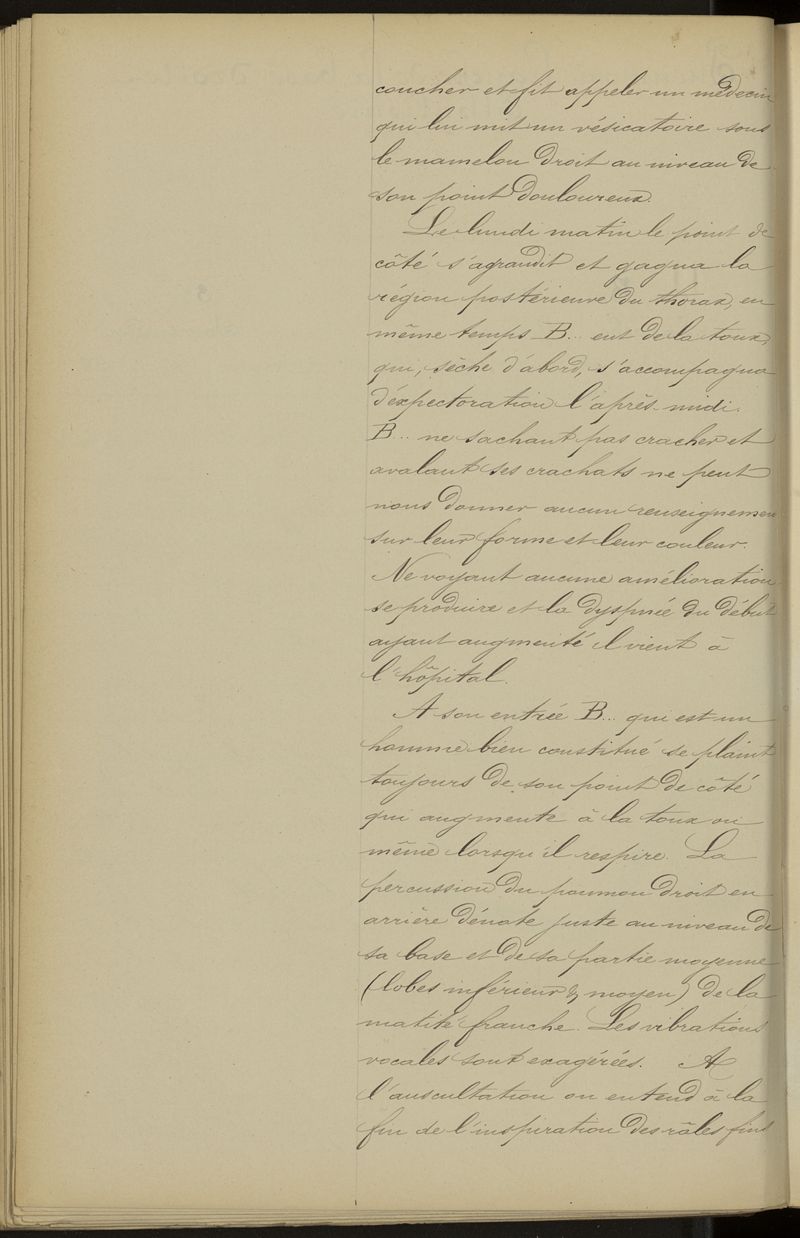 coucher et fit appeler un médecin
qui lui mit un vésicatoire sous
le mamelon droit au niveau de
son point douloureux.
Le lundi matin le point de
côté s'agrandit et gagna la
région postérieure du thorax, en
même temps B... eut de la toux,
qui, sèche d'abord, s'accompagna
d'expectoration l'après-midi.
B... ne sachant pas cracher et
avalant ses crachats ne peut
nous donner aucun renseignement
sur leur forme et leur couleur.
Ne voyant aucune amélioration
se produire et la dyspnée du début
ayant augmenté il vient à
l'hôpital.
A son entrée B... qui est un
homme bien constitué se plaint
toujours de son point de côté
qui augmente à la toux ou
même lorsqu'il respire. La
percussion du poumon droit en
arrière dénote juste au niveau de
sa base et de sa partie moyenne
(lobes inférieur & moyen) de la
matité franche. Les vibrations
vocales sont exagérées. A
l'auscultation on entend à la
fin de l'inspiration des râles fins